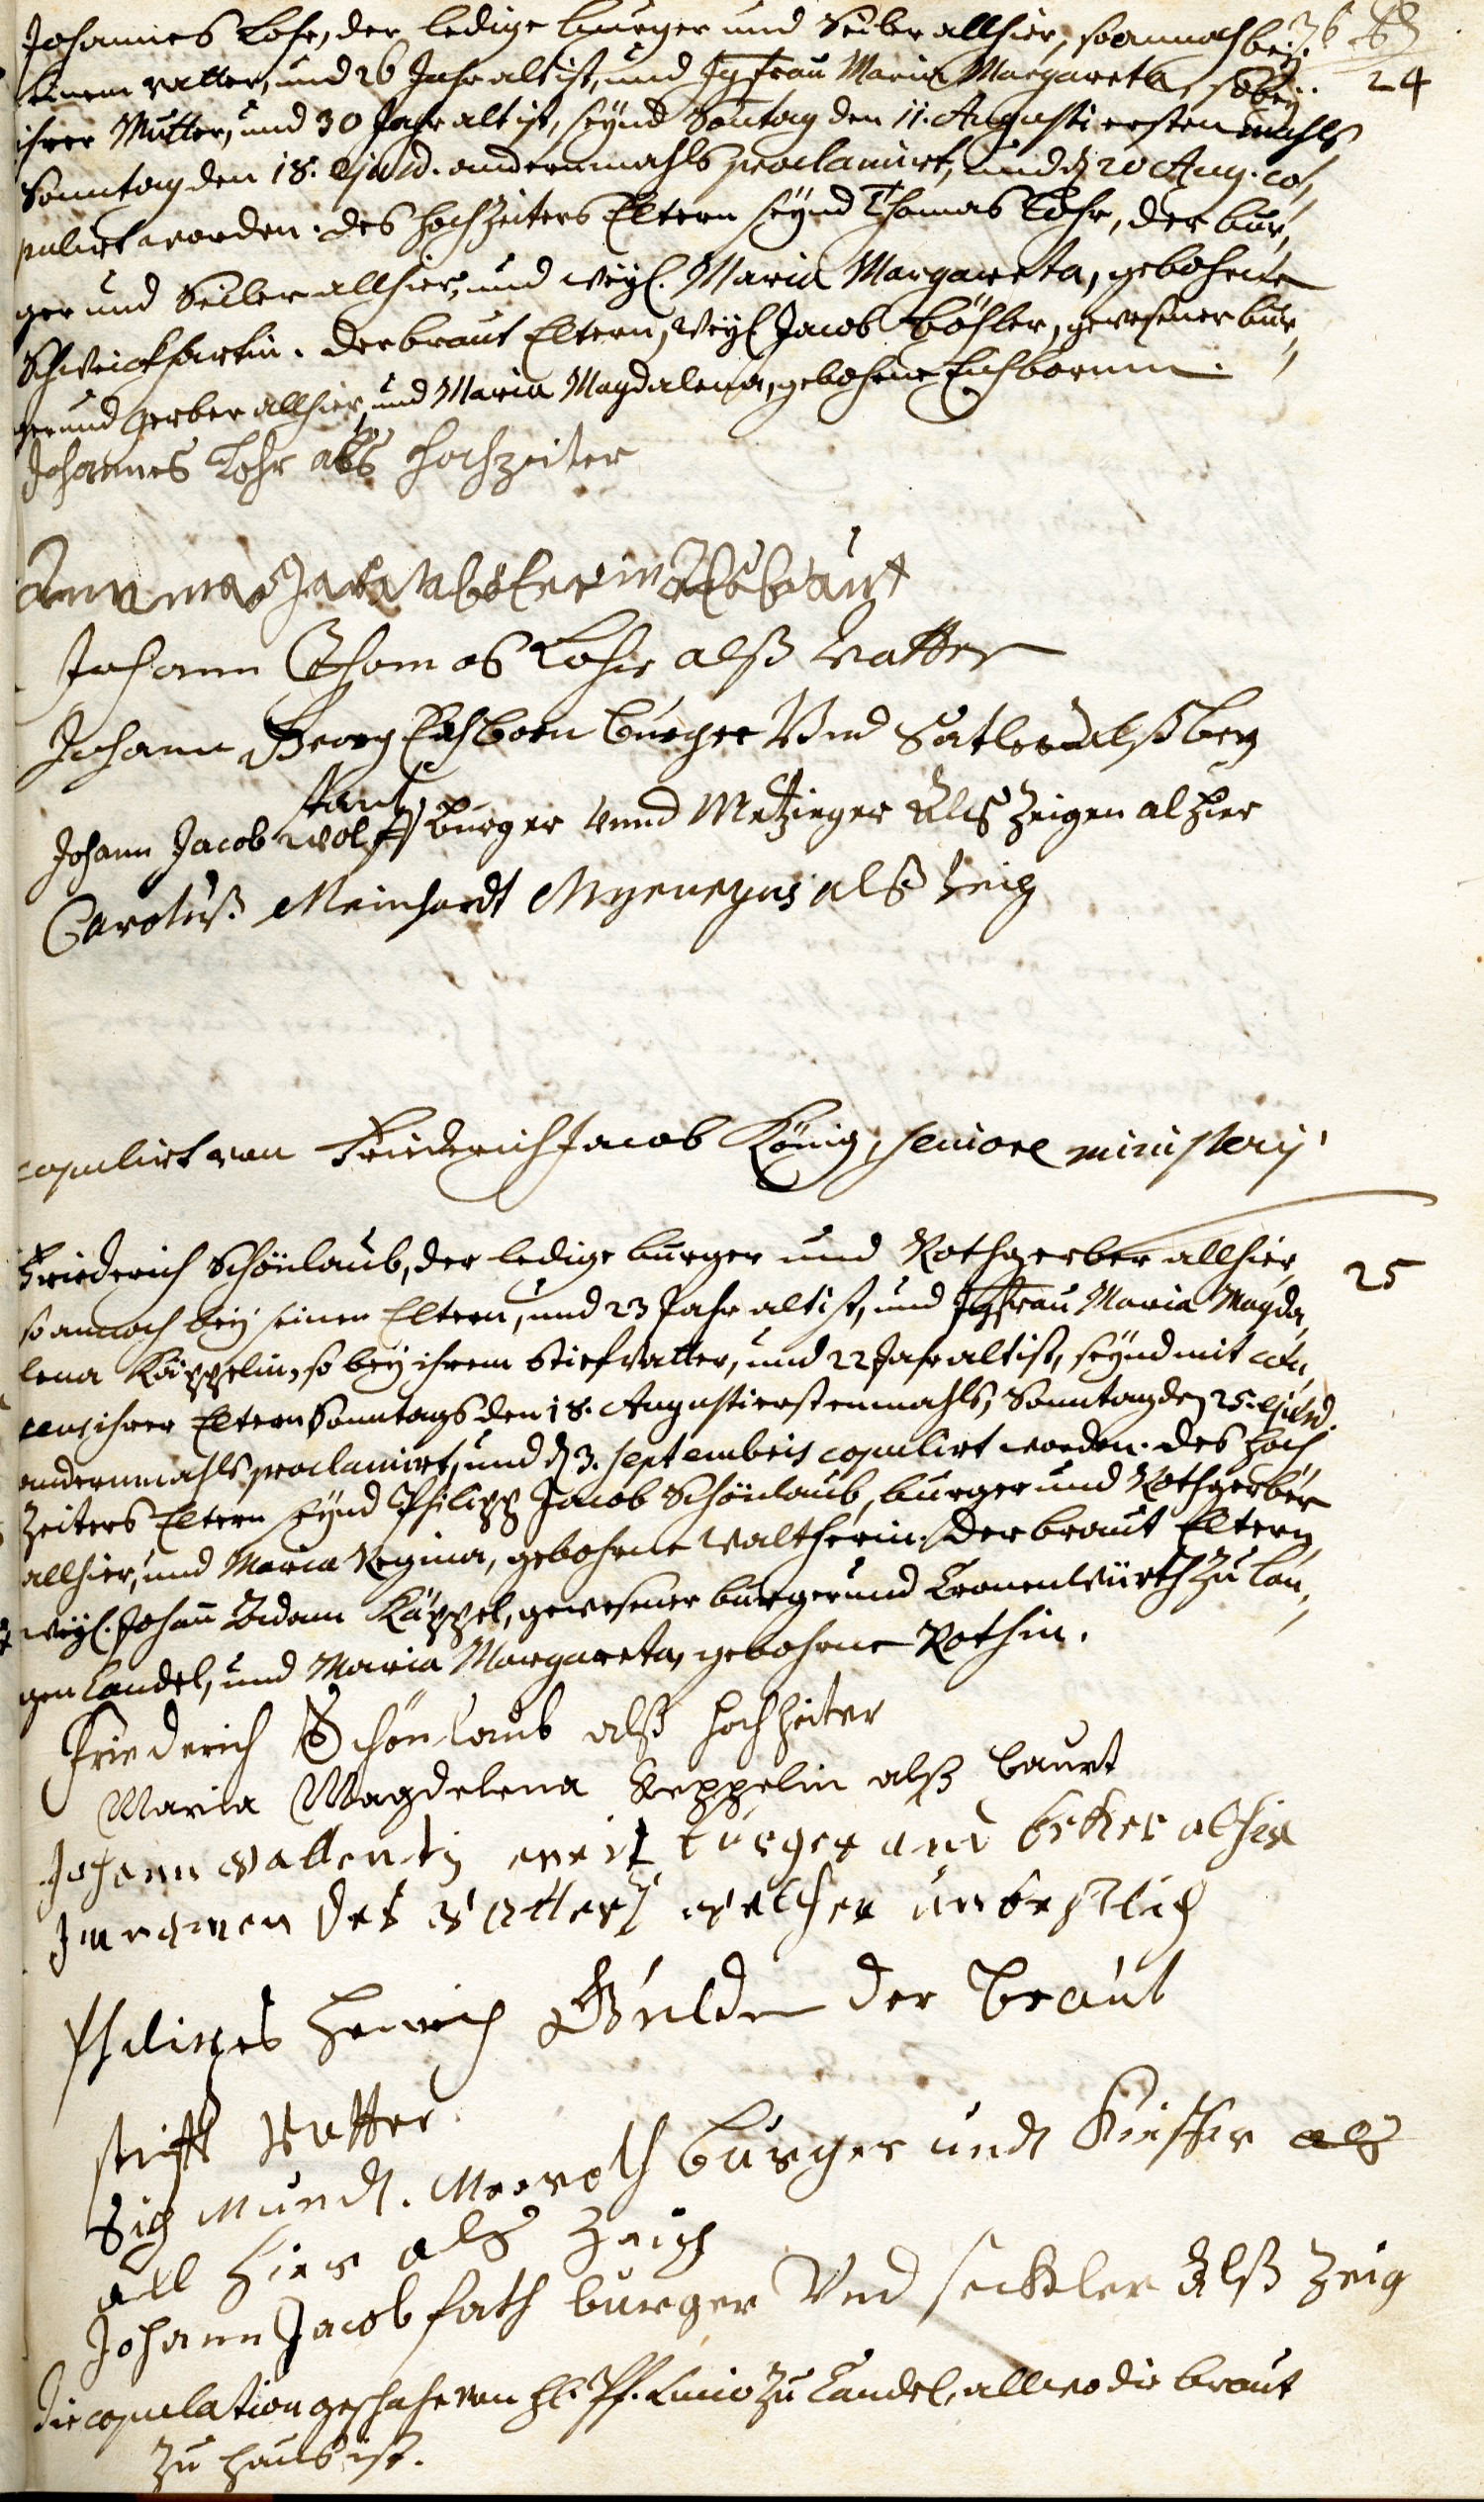 36
24
Johannes Lohr, der ledige burger und Seiler allhier, so annoch bey
seinem vatter, und 26 Jahr alt ist, und Jgfrau Maria Margareta, so bey
ihrer Mutter, und 30 Jahr alt ist, seynd Sontag den 11. Augusti ersten mahls
Sonntag den 18. ejusd. andernmahls proclamirt, und d 20 Aug. co,
pulirt worden. des Hochzeiters Eltern seynd Thomas Lohr, der bur,
ger und Seiler allhier, und weyl. Maria Margareta, gebohrne
Schweickhartin. der braut Eltern, weyl. Jacob Böhler, gewesener bur,
ger und gerber allhier, und Maria Magdalena, gebohrne Eichbornin.
Johannes Lohr als Hochzeiter
Johann Thomas Lohr alß Vatter
Johann Georg Eichborn burger Und Satler alß bey
stant
Johann Jacob wolff burger unnd Metzieger Als Zeigen al hier
Carolus Meinhardt alß Zeig
copulirt von Friederich Jacob König, seniore ministerij
25
Friederich Schönlaub, der ledige burger und Rothgerber allhier
so annoch bey seinen Eltern, und 23 Jahr alt ist, und Jgfrau Maria Magda,
lena Käppelin, so bey ihrem Stiefvatter, und 22 Jahr alt ist, seynd mit con,
sens ihrer Eltern Sonntags den 18. Augusti erstenmahls, Sonntag den 25. ejusd.
andernmahls proclamirt, und d 3. septembris copulirt worden. des Hoch
zeiters Eltern seynd Philipp Jacob Schönlaub, burger und Rothgerber
allhier, und Maria Regina, gebohrne Waltherin. der braut Eltern
weyl. Johann Adam Käppel, gewesener burger und Cronenwürth zu Lan,
gen Candel, und Maria Margareta, gebohrne Rothin.
Friederich Schönlaub alß Hochzeiter
Maria Magdelena Keppelin alß baurt
Johann vallentin burger und beker alhier
Im namen des vatters welcher unbeßlich
Philippes Henrich Gulden der braut
stiff Vatter
Sig Mundt. Morroth burger undt Kieffer als
all hier als Zeich
Johann Jacob fath burger Und seckler Alß Zeig
die copulation geschahe von H. Pf. Lucio zu Candel, allwo die braut
zu hauß ist.